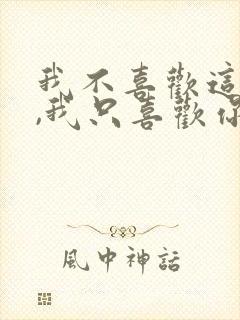 我不喜歡這
,我只喜歡你
風中神話